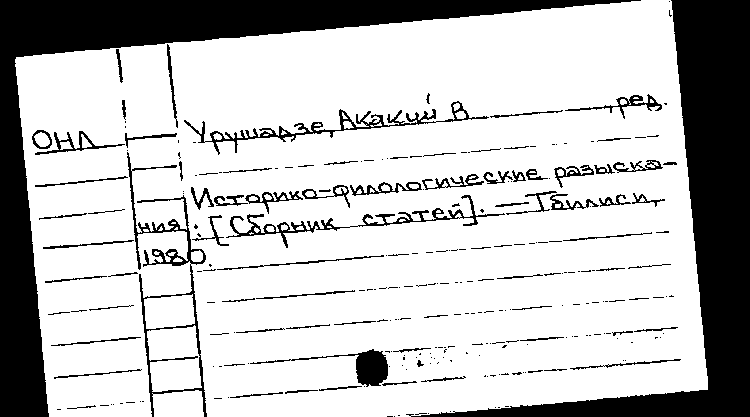 ОНЛ Урушадзе, Акакий В , ред.
Историко-филологические разыска-
ния : [Сборник статей]. — Тбилиси,
1980.